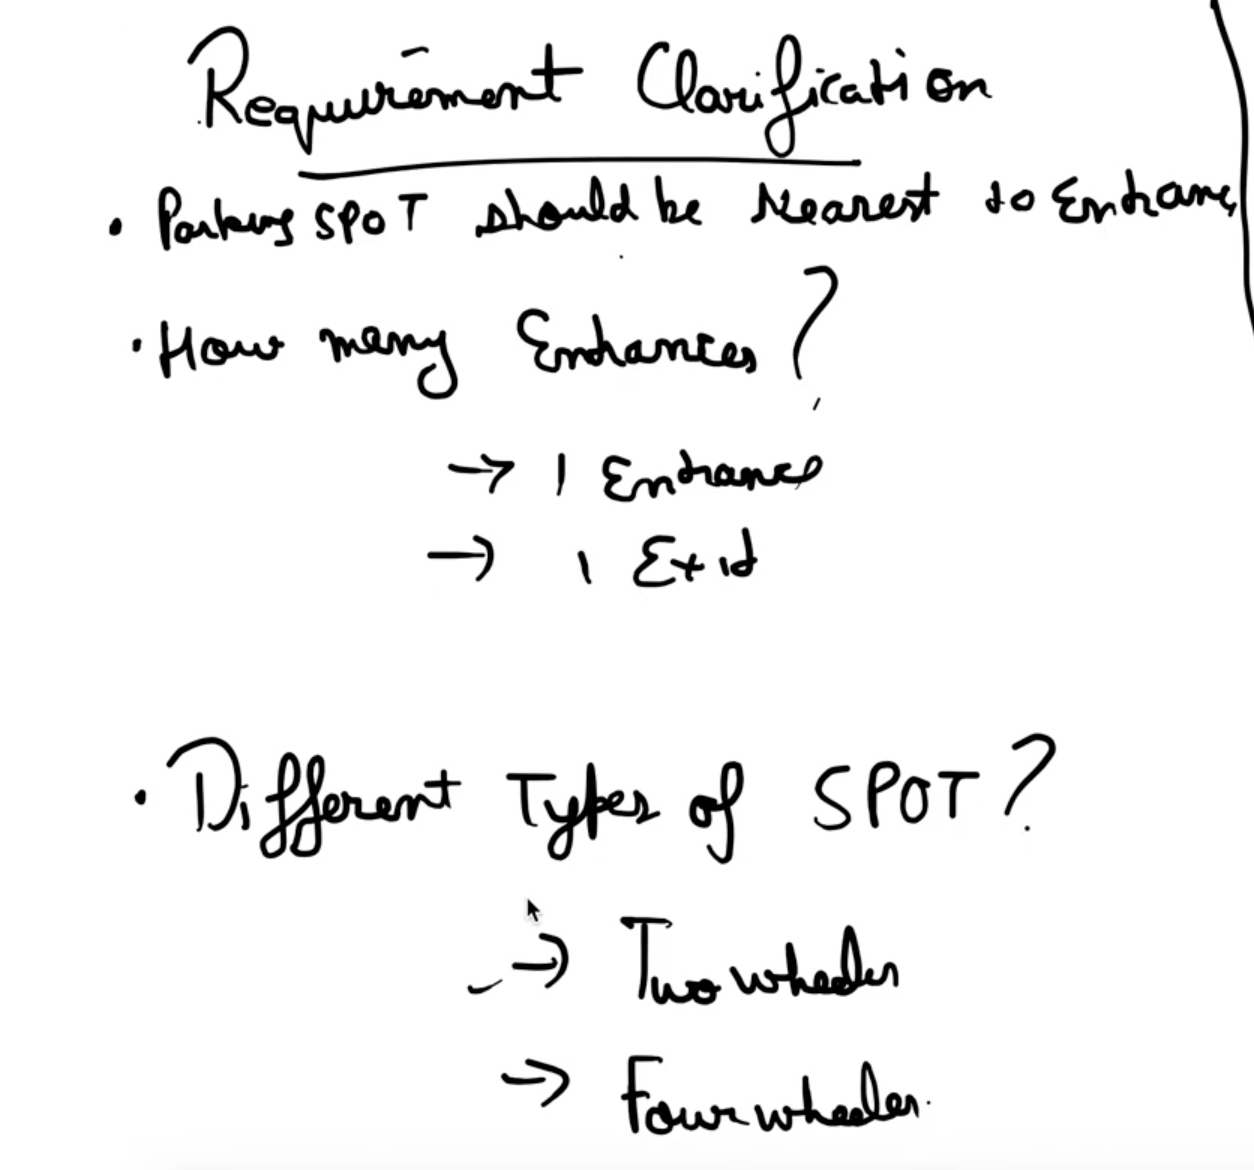 Requirement Clarification
• Parking SPOT should be Nearest to Entrance
• How many Entrances?
→ 1 Entrance
→ 1 Exit
• Different Types of SPOT?
→ Two wheeler
→ Four wheeler